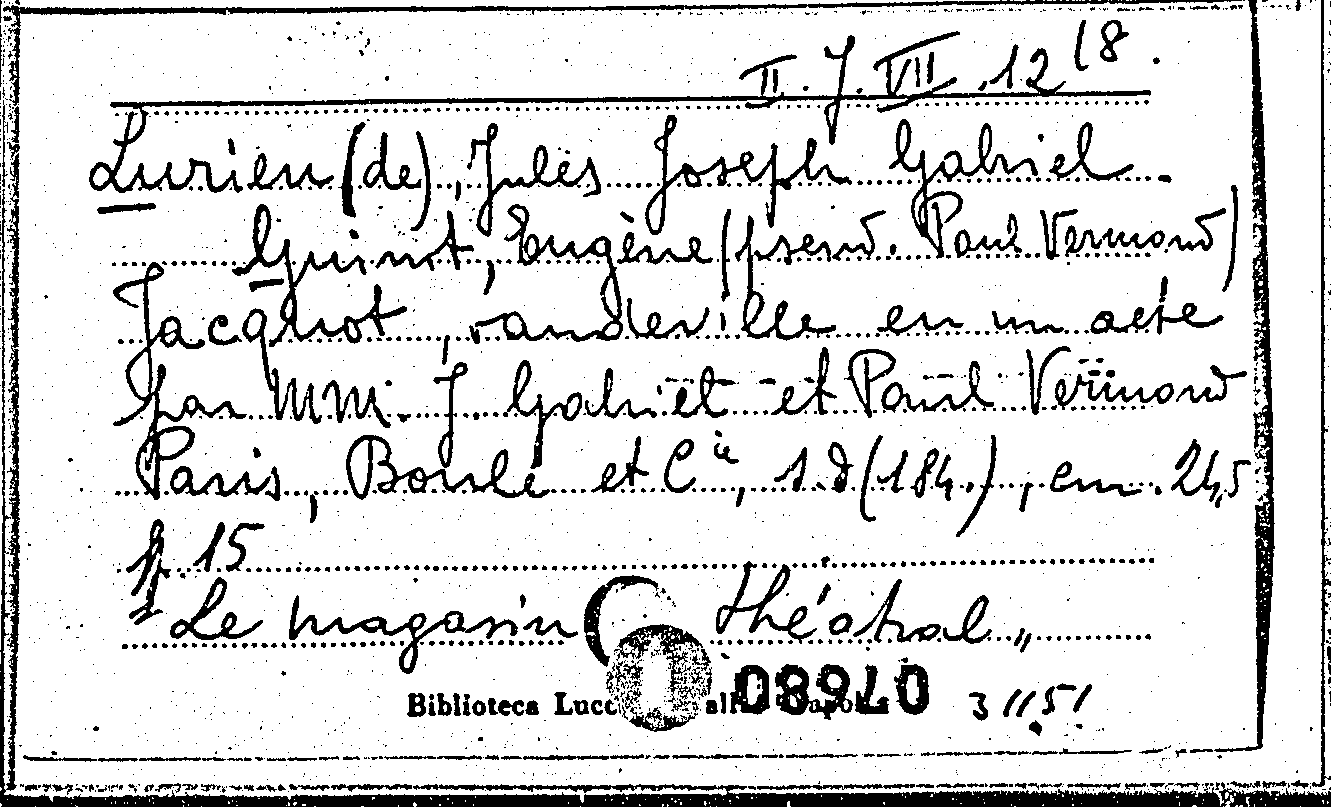 II. J. VII .12 18.
Lurieu (de), Jules Joseph Gabriel -
Guinot, Eugène (pseud. Paul Vermond)
Jacquot, vaudeville en un acte
par MM. J. Gabriel et Paul Vermond
Paris, Boulé et Cie, s.d (184.), cm. 24,5
p. 15
"Le magasin théatral"
Biblioteca Lucc
3 11 51